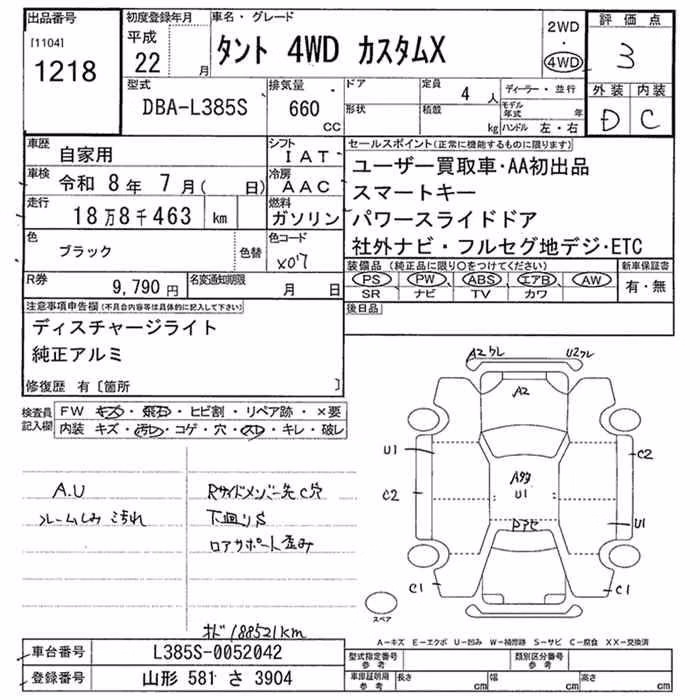 出品番号
[1104]
1218
初度登録年月
平成
22 月
車名・グレード
タント 4WD カスタムX
2WD
・
4WD
評価点
3
外装 内装
D C
型式
DBA-L385S
排気量
660
CC
ドア
形状
定員 4 人
積載 kg
ディーラー・並行
モデル年式 年
ハンドル 左・右
車歴 自家用
シフト IAT
車検 令和 8年 7月( 日)
冷房 AAC
走行 18万8千463 km
燃料 ガソリン
色 ブラック 色替
色コード X07
R券 9,790 円
名変通知期限 月 日
セールスポイント(正常に機能するものに限ります)
ユーザー買取車・AA初出品
スマートキー
パワースライドドア
社外ナビ・フルセグ地デジ・ETC
装備品 (純正品に限り○をつけてください)
PS PW ABS エアB AW
SR ナビ TV カワ
新車保証書
有・無
後日品
注意事項申告欄(不具合内容等は具体的に記入して下さい)
ディスチャージライト
純正アルミ
修復歴 有〔箇所 〕
検査員記入欄
FW キズ・飛石・ヒビ割・リペア跡・×要
内装 キズ・汚レ・コゲ・穴・スレ・キレ・破レ
A.U
ルームしみ 汚れ
Rサイドメンバー先C穴
下廻りS
ロアサポート歪み
オド188521km
A2 U2
A2
U1
C2
C2
U1
U1
C1
C1
スペア
A-キズ E-エクボ U-凹み W-補修跡 S-サビ C-腐食 XX-交換済
車台番号 L385S-0052042
登録番号 山形 581 さ 3904
型式指定番号
参考
類別区分番号
参考
車庫証明用
参考
長さ cm
幅 cm
高さ cm